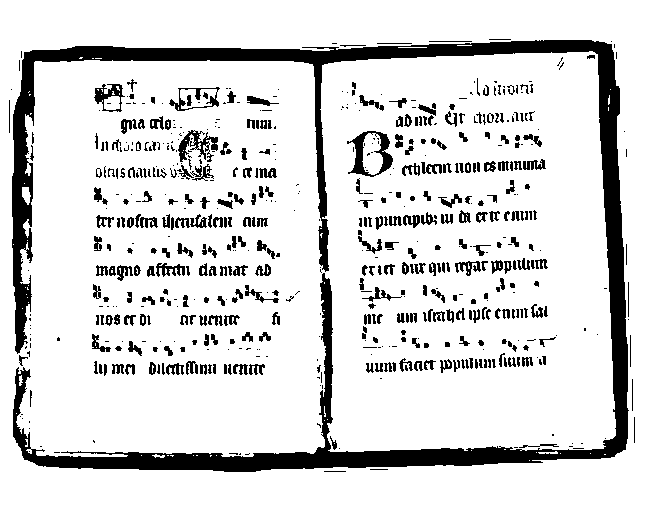 gna celo rum.
In choro
E cce ma
ter nostra iherusalem cum
magno affectu clamat ad
nos et di cit uenite fi
lij mei dilectissimi uenite
Ad introitū
ad me. Et chori. aut
Bethleem non es minima
in principibꝫ iu da ex te enim
exiet dux qui regat populum
me um israhel ipse enim sal
uum faciet populum suum a